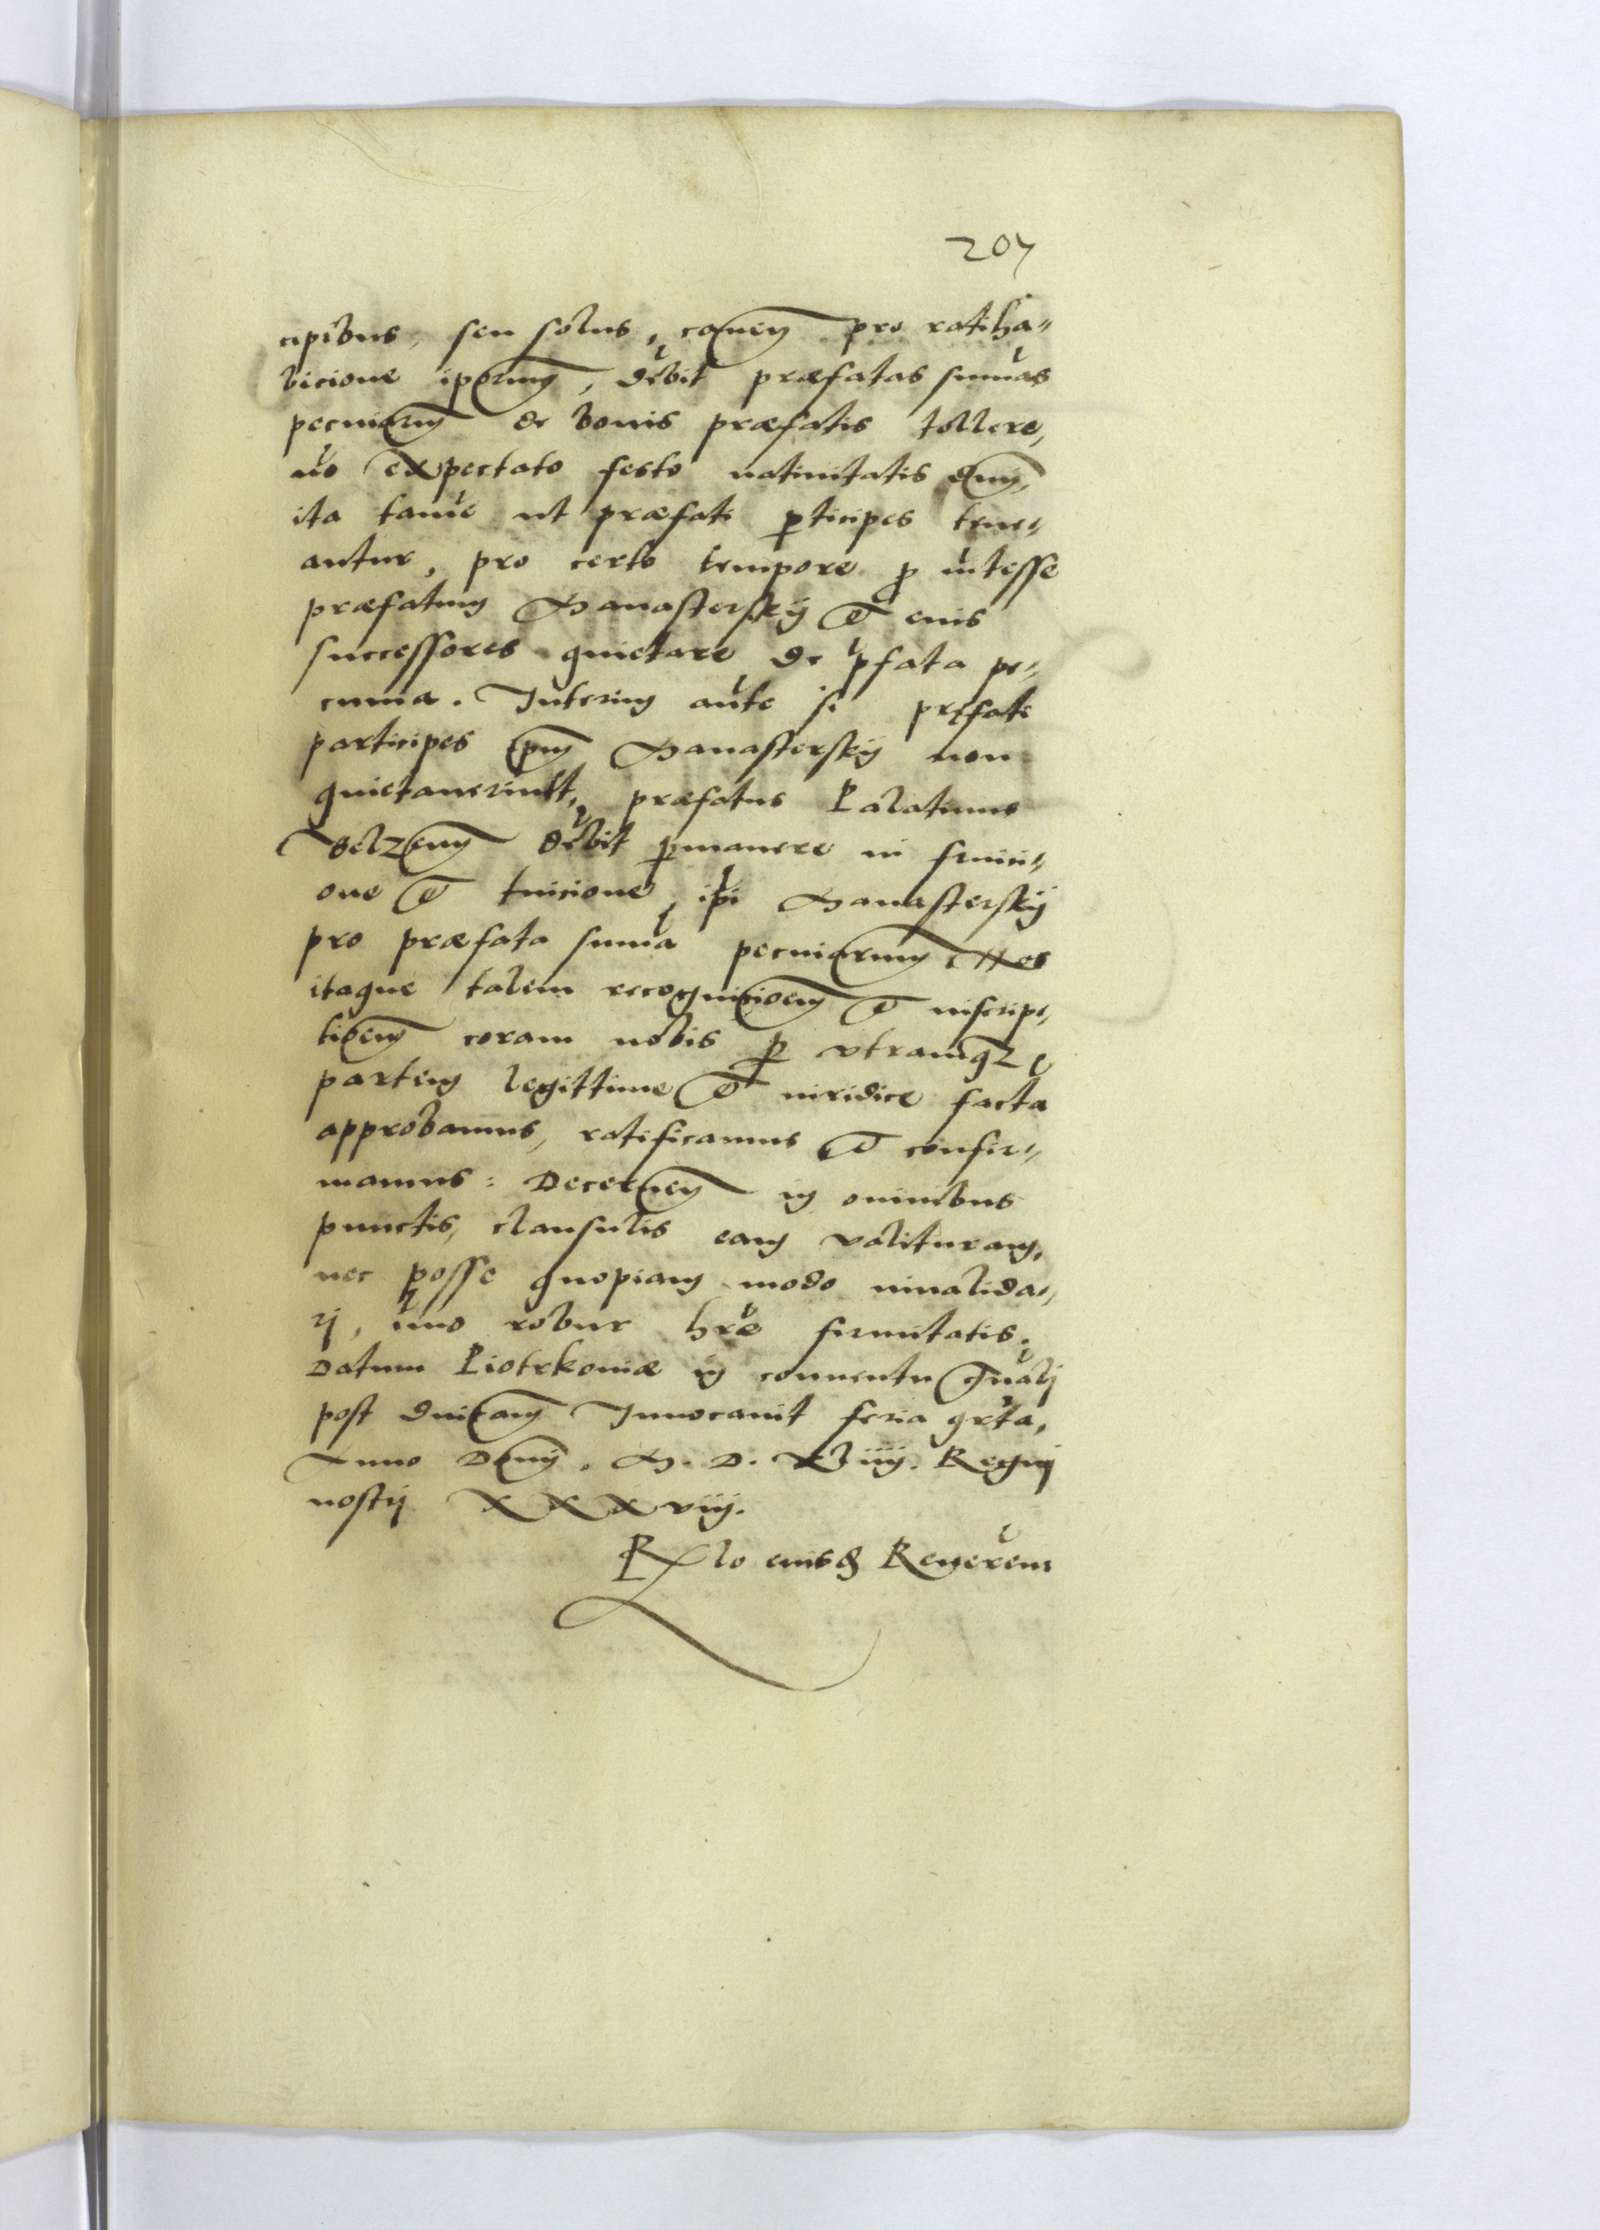 207
cipibus, seu solus, caueñ pro ratiha=
bicione ipõrum, debit præfatas sum̃as
pecuniarum de bonis præfatis tollere,
nõ expectato festo natiuitatis dñi,
ita tamẽ ut præfati p̱ticipes tene=
antur, pro certo tempore p̱ int̃esse
præfatum Manasterskij et euis
successores quietare de p̃fata pe=
cunia. Interim aũte si pręfati
participes ip̃m Manasterskij non
quietauerintt, præfatus Palatinus
Belzeñ debit p̱manere in fruici=
one et tuicione, ip̃i Manasterskij
pro præfata sum̃a pecuniarum. Nos
itaque talem recognicioem et inscrip=
tioem coram nobis p̱ vtramq3
partem legittime et iuridice factã
approbamus, ratificamus et confir=
mamus: Decerneñ in omnibus
punctis, clausulis eam valituram,
nec posse quopiam modo inualida=
rj, im̃o robur hr̃e firmitatis.
Datum Piotrkouiæ in conuentu gñalj
post dnicam Inuocauit feria qr̃ta,
Anno Dñj. M. D. xliiij. Regnj
nostrj XXXviij.
Rlo eiusd Reueren̄